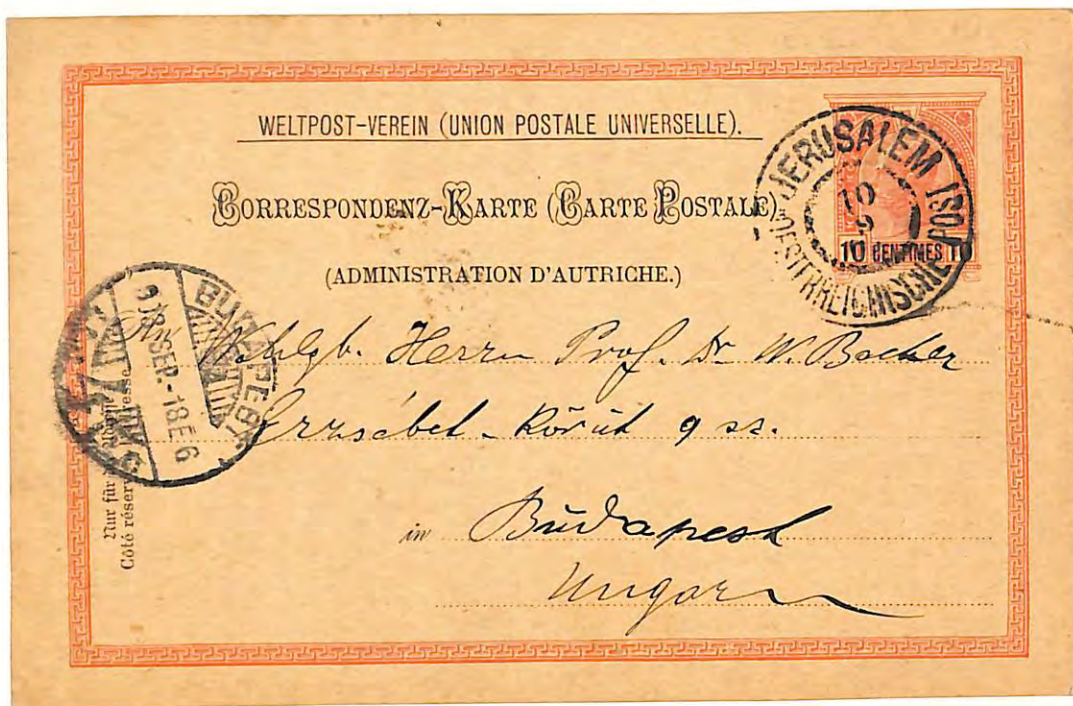 WELTPOST-VEREIN (UNION POSTALE UNIVERSELLE).
CORRESPONDENZ-KARTE (CARTE POSTALE).
(ADMINISTRATION D'AUTRICHE.)
JERUSALEM
10
9
OESTERREICHISCHE POST
10 CENTIMES 10
BUDAPEST
SEP.-18E6
An Wohlgb. Herrn Prof. Dr W. Bacher
Erzsébet-Körút 9 sz.
in Budapest
Ungarn
Nur für
Côté réser